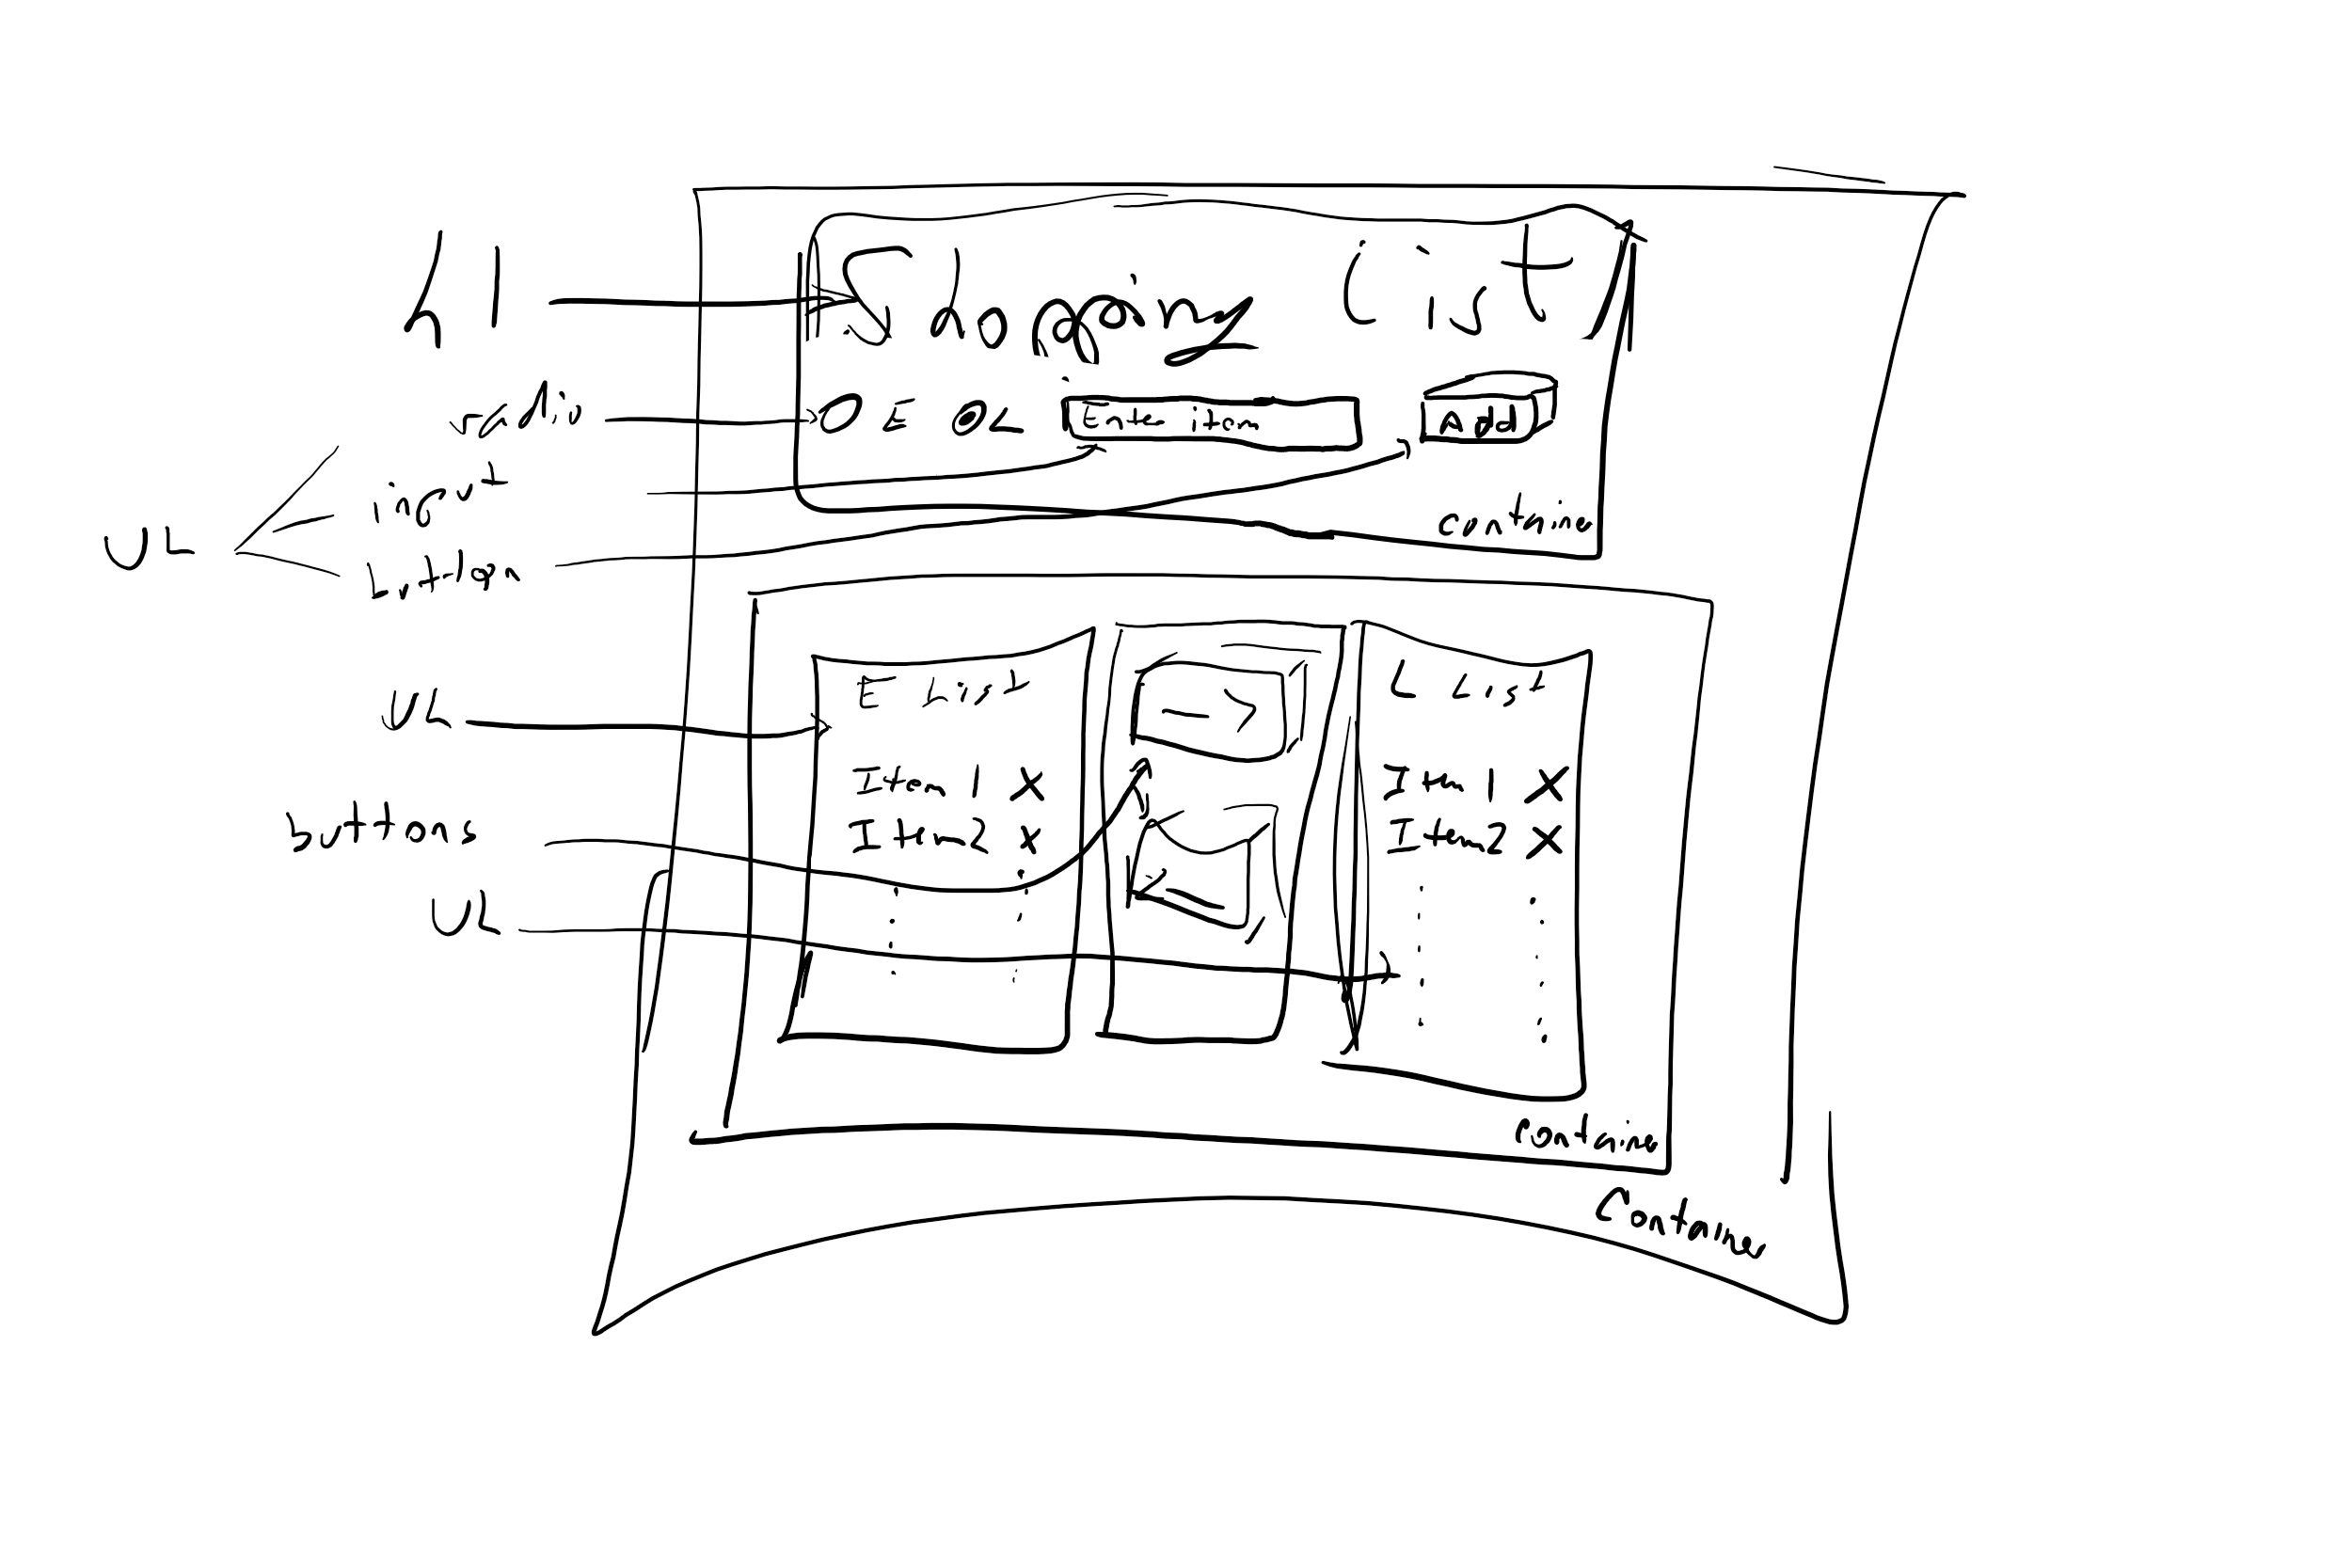 h1
Shopping list
radio
E
L
Enter item
add
input
ul
button
container
E List
L List
ul
->
Item 1 X
Item 1 X
buttons
Item 2 X
Item 2 X
<-
ul
Container
Container